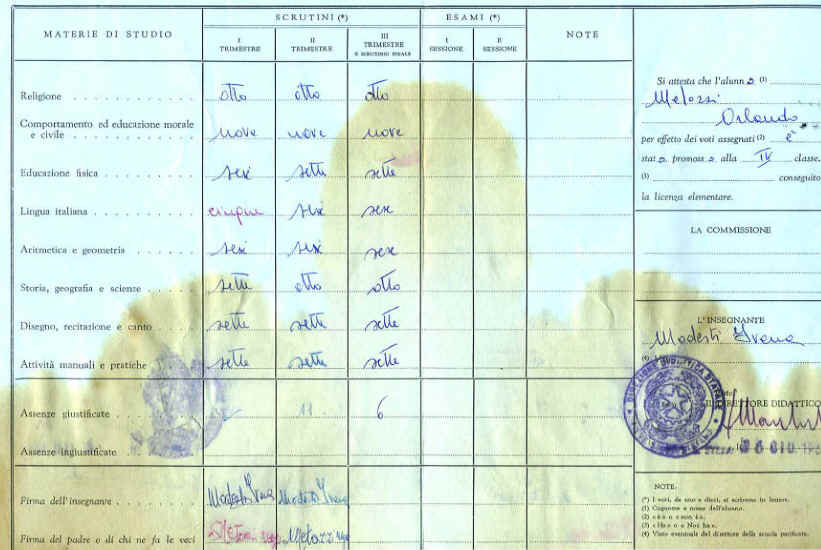 MATERIE DI STUDIO
SCRUTINI (*)
ESAMI (*)
NOTE
I TRIMESTRE
II TRIMESTRE
III TRIMESTRE E SCRUTINIO FINALE
I SESSIONE
II SESSIONE
Religione otto otto otto
Comportamento ed educazione morale
e civile nove nove nove
Educazione fisica sei sette sette
Lingua italiana cinque sei sei
Aritmetica e geometria sei sei sei
Storia, geografia e scienze sette otto otto
Disegno, recitazione e canto sette sette sette
Attività manuali e pratiche sette sette sette
Assenze giustificate 11 6
Assenze ingiustificate
Firma dell'insegnante Modesti Irena Modesti Irena
Firma del padre o di chi ne fa le veci
Si attesta che l'alunno (1)
Melozzi
Orlando
per effetto dei voti assegnati (2) è
stato promosso alla IV classe.
(3) conseguito
la licenza elementare.
LA COMMISSIONE
L'INSEGNANTE
Modesti Irena
(4)
IL DIRETTORE DIDATTICO
DIREZIONE DIDATTICA STATALE
GIU
NOTE:
(*) I voti, da uno a dieci, si scrivono in lettere.
(1) Cognome e nome dell'alunno.
(2) « è » o « non è ».
(3) « Ha » o « Non ha ».
(4) Visto eventuale del direttore della scuola parificata.